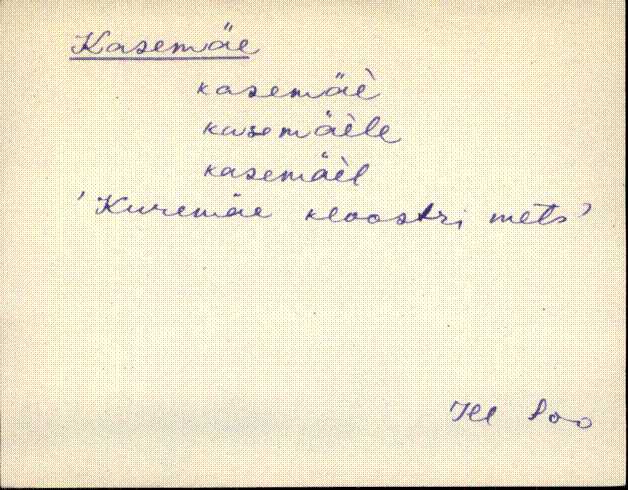 Kasemäe
kasemäè
kasemäèle
kasemäèl
'Kuremäe kloostri mets'
Soo